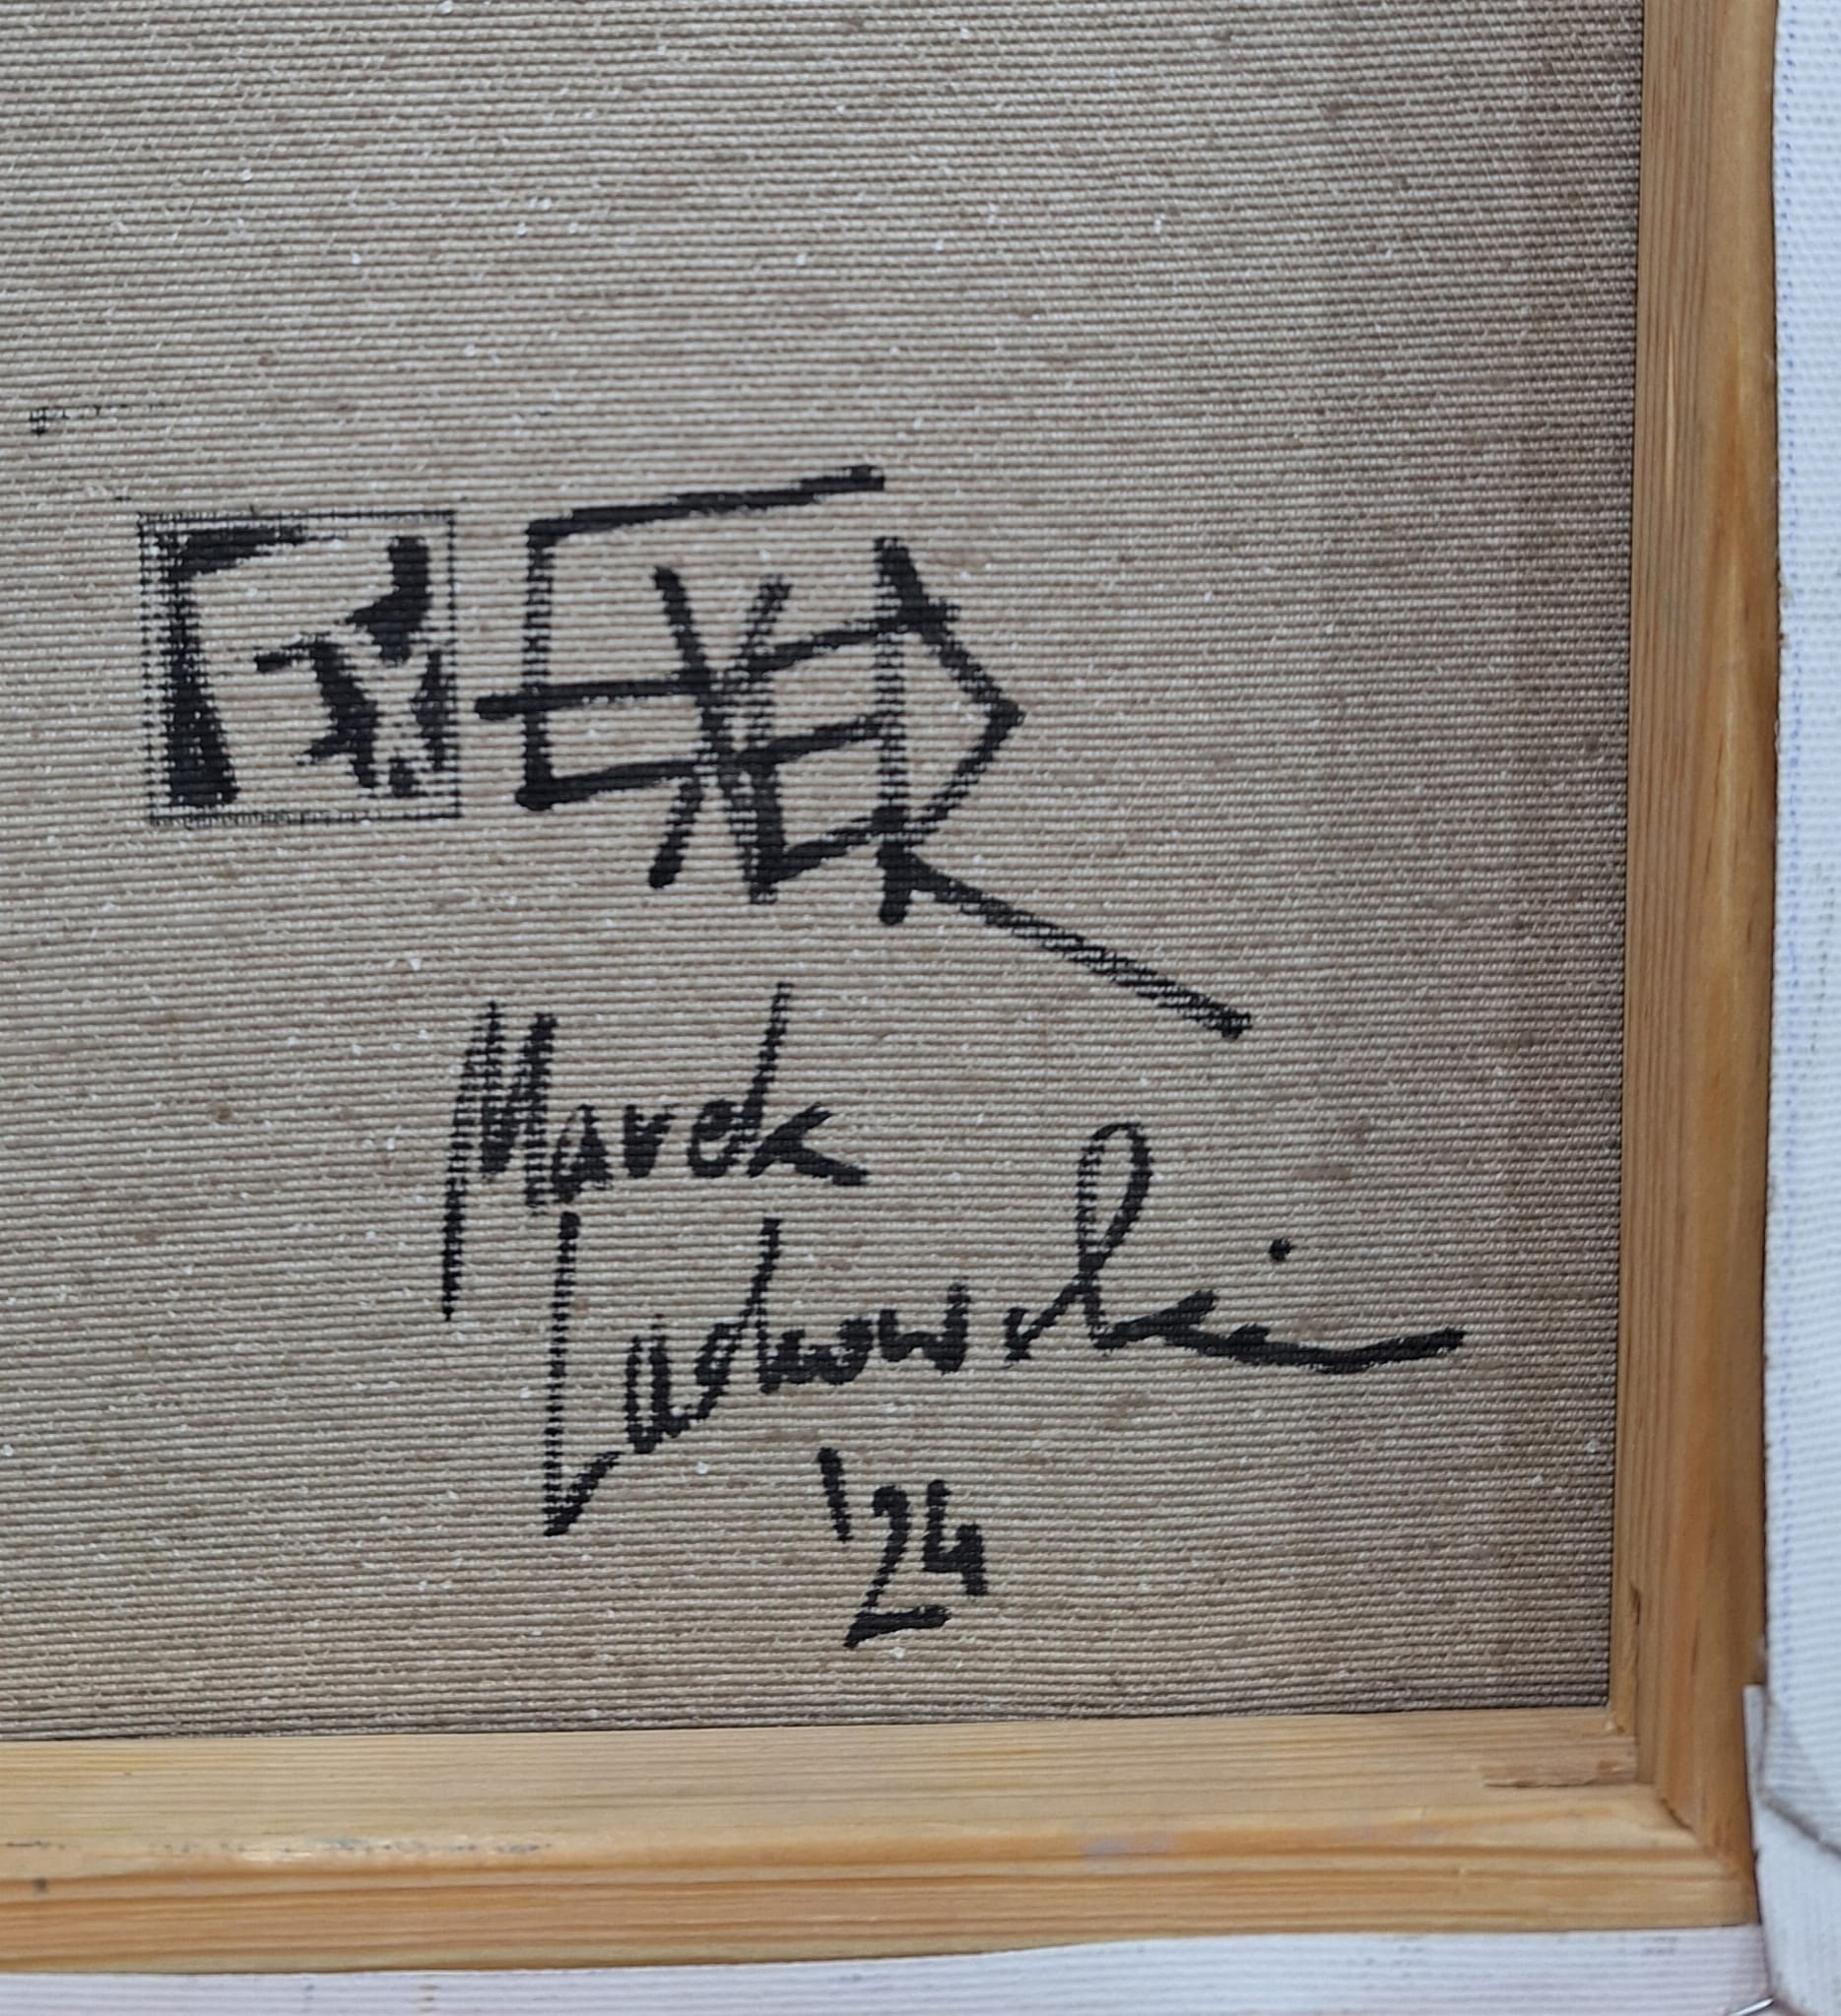 EXER
Marek
Lachowski
'24